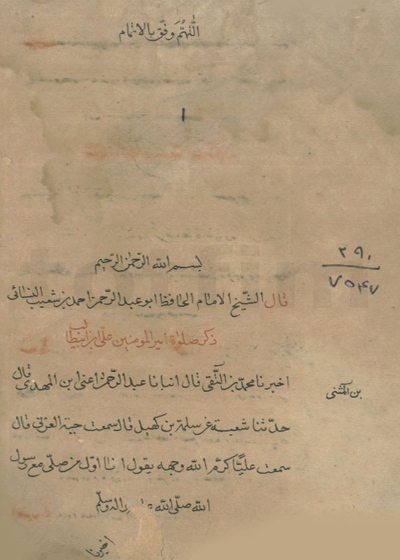 اللّهُمَّ وفق بالاتمام
١
بسم الله الرحمن الرحيم
٢٩٠
٧٥۴٧
قال الشّيخ الامام الحافظ ابو عبد الرحمن احمد بن شعيب النسائى
ذكر صلوة امير المومنين على بن ابيطالب
اخبرنا محمد بن التّقى قال انبانا عبد الرحمن اعنى ابن المهدى قال
بن المثنى
حدّثنا شعبة عن سلمة بن كهيل قال سمعت حبة العرنى قال
سمعت عليّا كرّم الله وجهه يقول انا اوّل من صلى مع رسول
الله صلّى الله واله وسلّم
اخبرنا